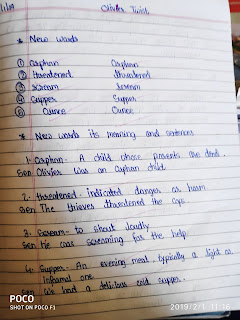 Oliver Twist
* New words
① Orphan Orphan
② threatened threatened
③ scream scream
④ Supper Supper
⑤ Ounce Ounce
* New words its meaning and sentences
1. Orphan - A child whose parents are dead.
Sen Oliver was an orphan child.
2. threatened - indicated danger or harm
Sen The thieves threatened the cops.
3. Scream - to shout loudly
Sen He was screaming for the help.
4. Supper - An evening meal typically a light or
informal one.
Sen We had a delicious cold supper.
POCO
SHOT ON POCO F1
2019/2/1 11:16